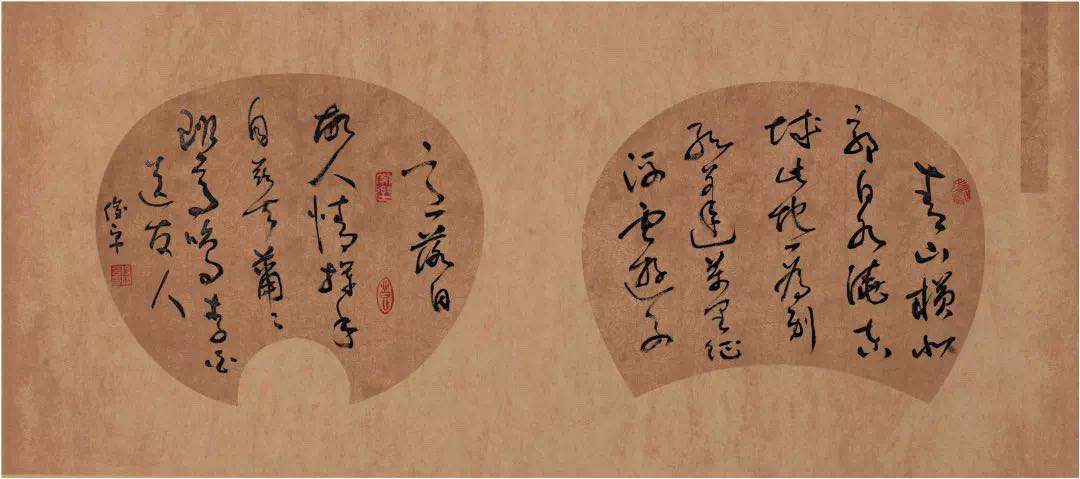 青山橫北
郭白水繞東
城此地一為別
孤蓬萬里征
浮雲遊子
意落日
故人情揮手
自茲去蕭々
班馬鳴李白
送友人